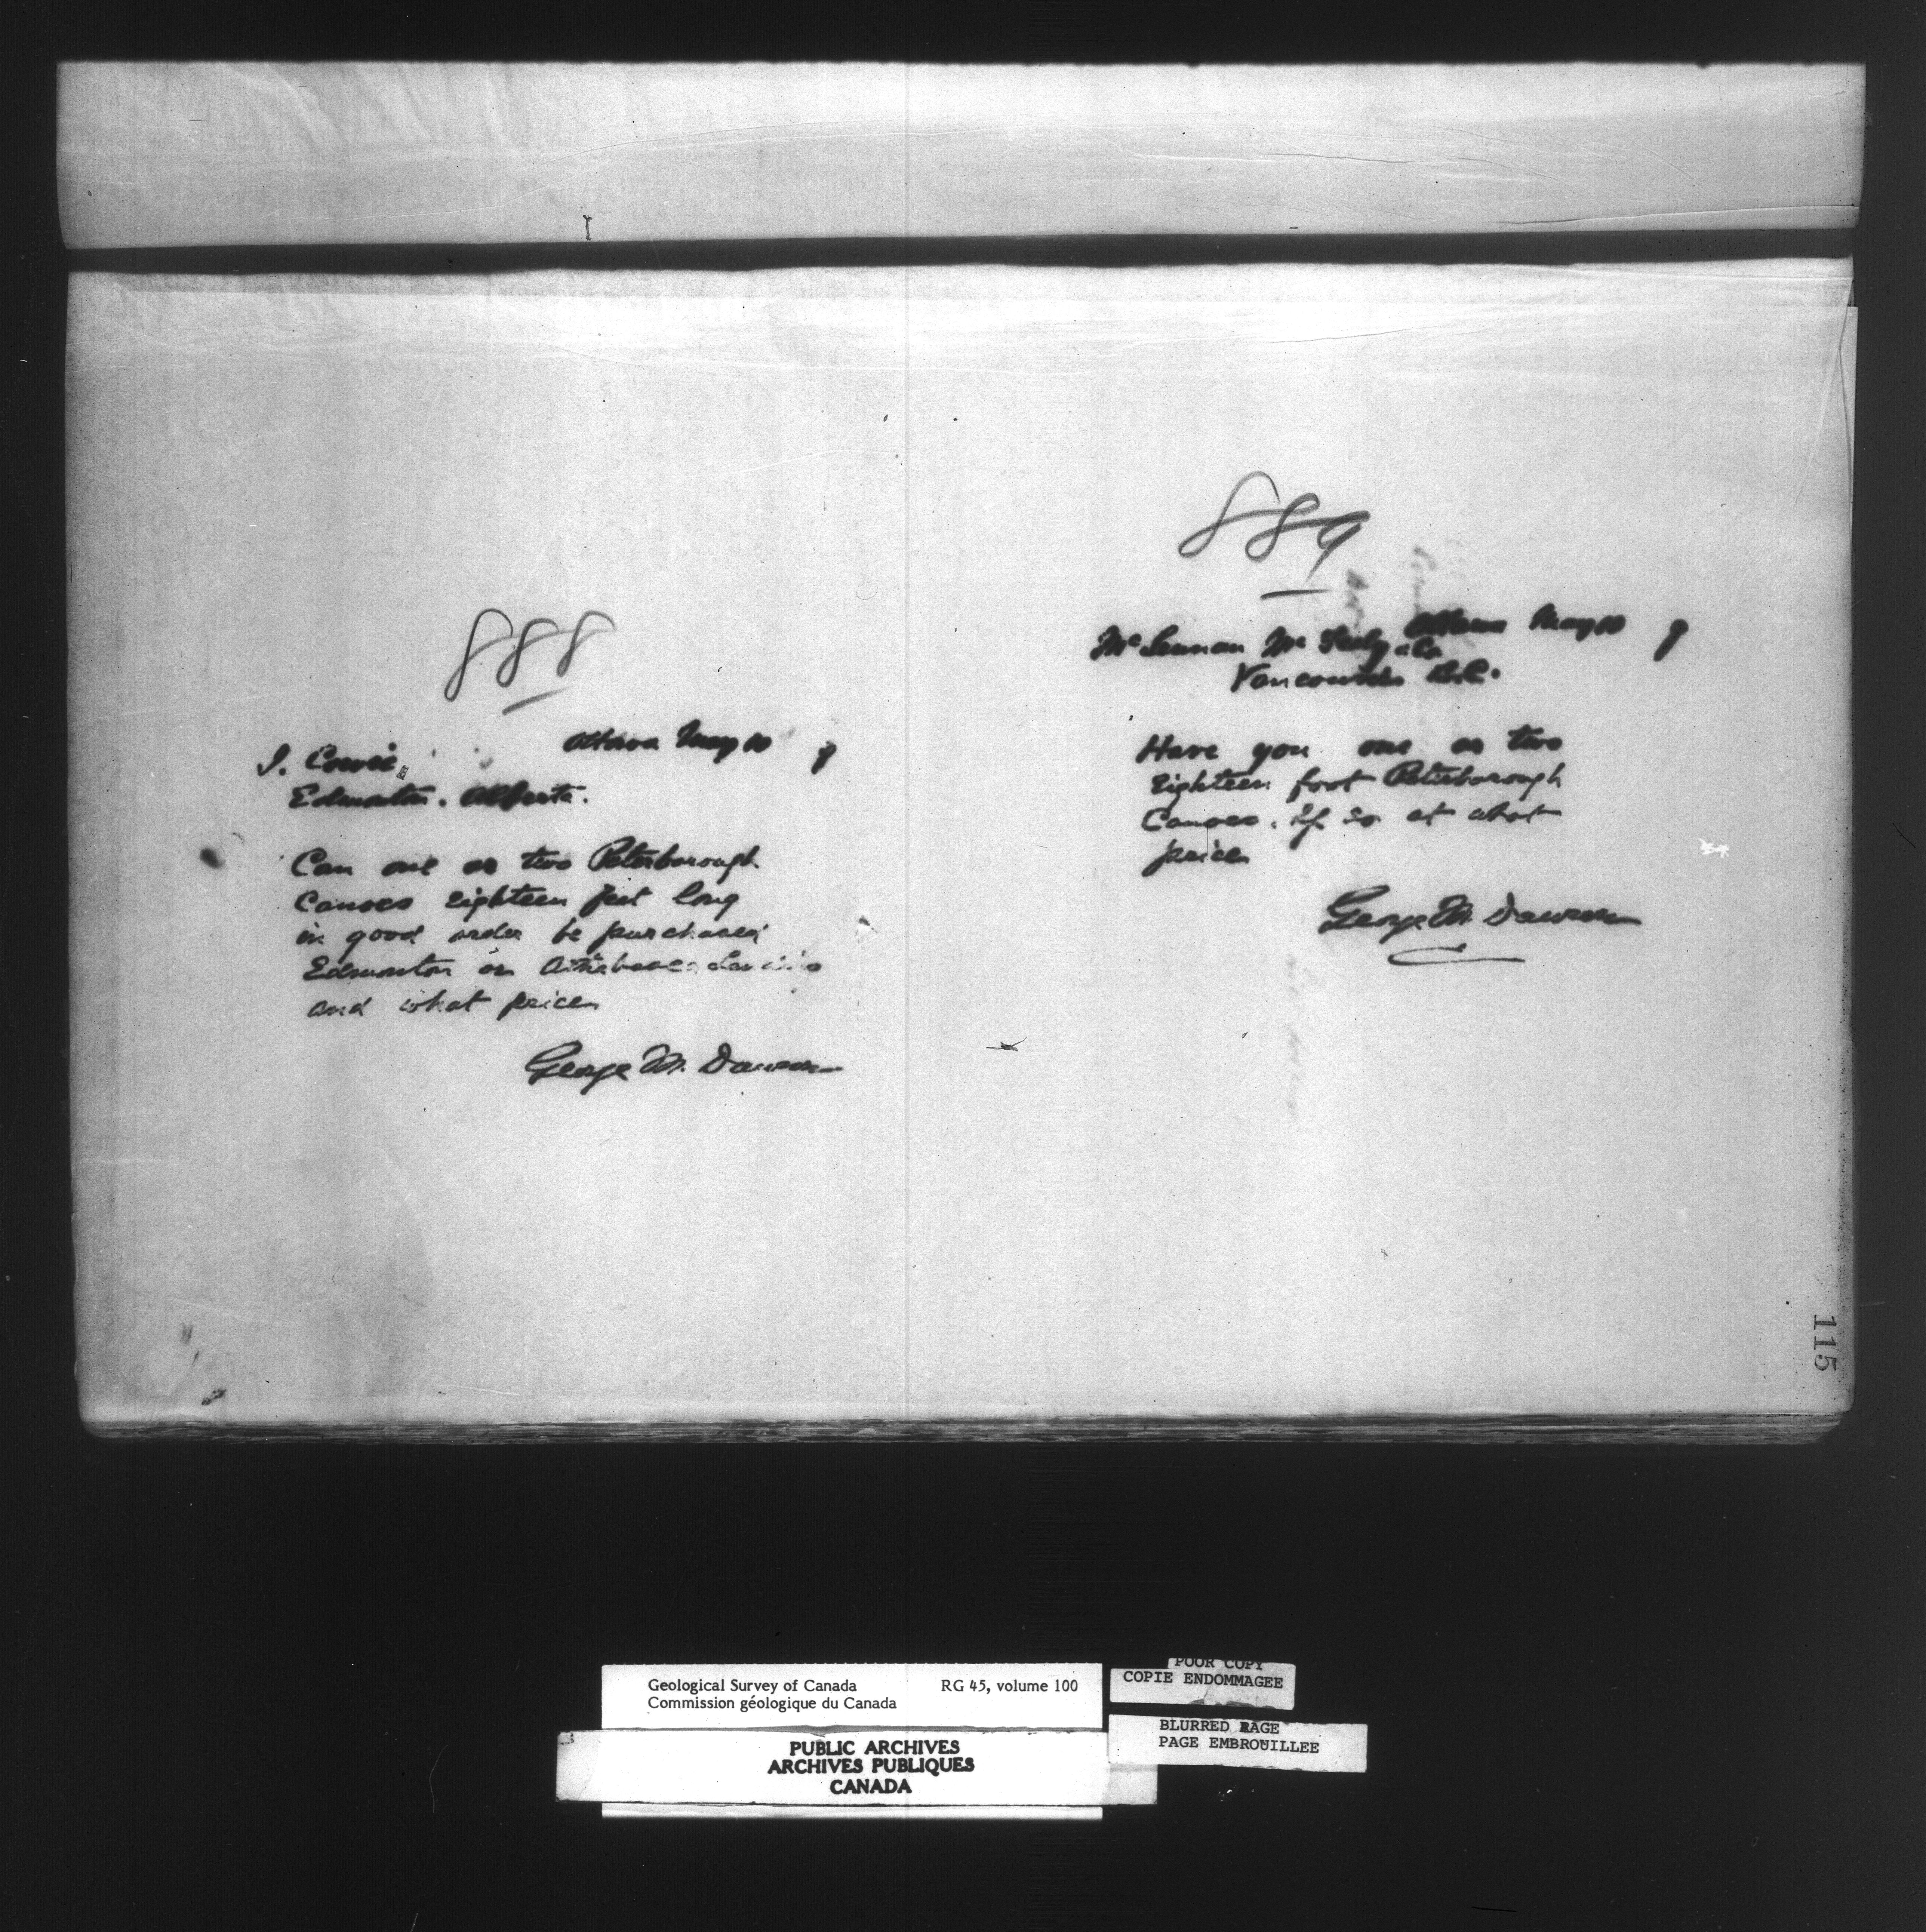 888
Ottawa May 10 9
I. Cowie,
Edmonton. Alberta.
Can one or two Peterborough
Canoes eighteen feet long
in good order be purchased
Edmonton or Athabasca Landing
and what price
George M. Dawson
889
Ottawa May 10 9
McLennan McFeely & Co
Vancouver B.C.
Have you one or two
Eighteen foot Peterborough
Canoes. If so at what
price
George M. Dawson
115
Geological Survey of Canada RG 45, volume 100
Commission géologique du Canada
PUBLIC ARCHIVES
ARCHIVES PUBLIQUES
CANADA
POOR COPY
COPIE ENDOMMAGEE
BLURRED PAGE
PAGE EMBROUILLEE